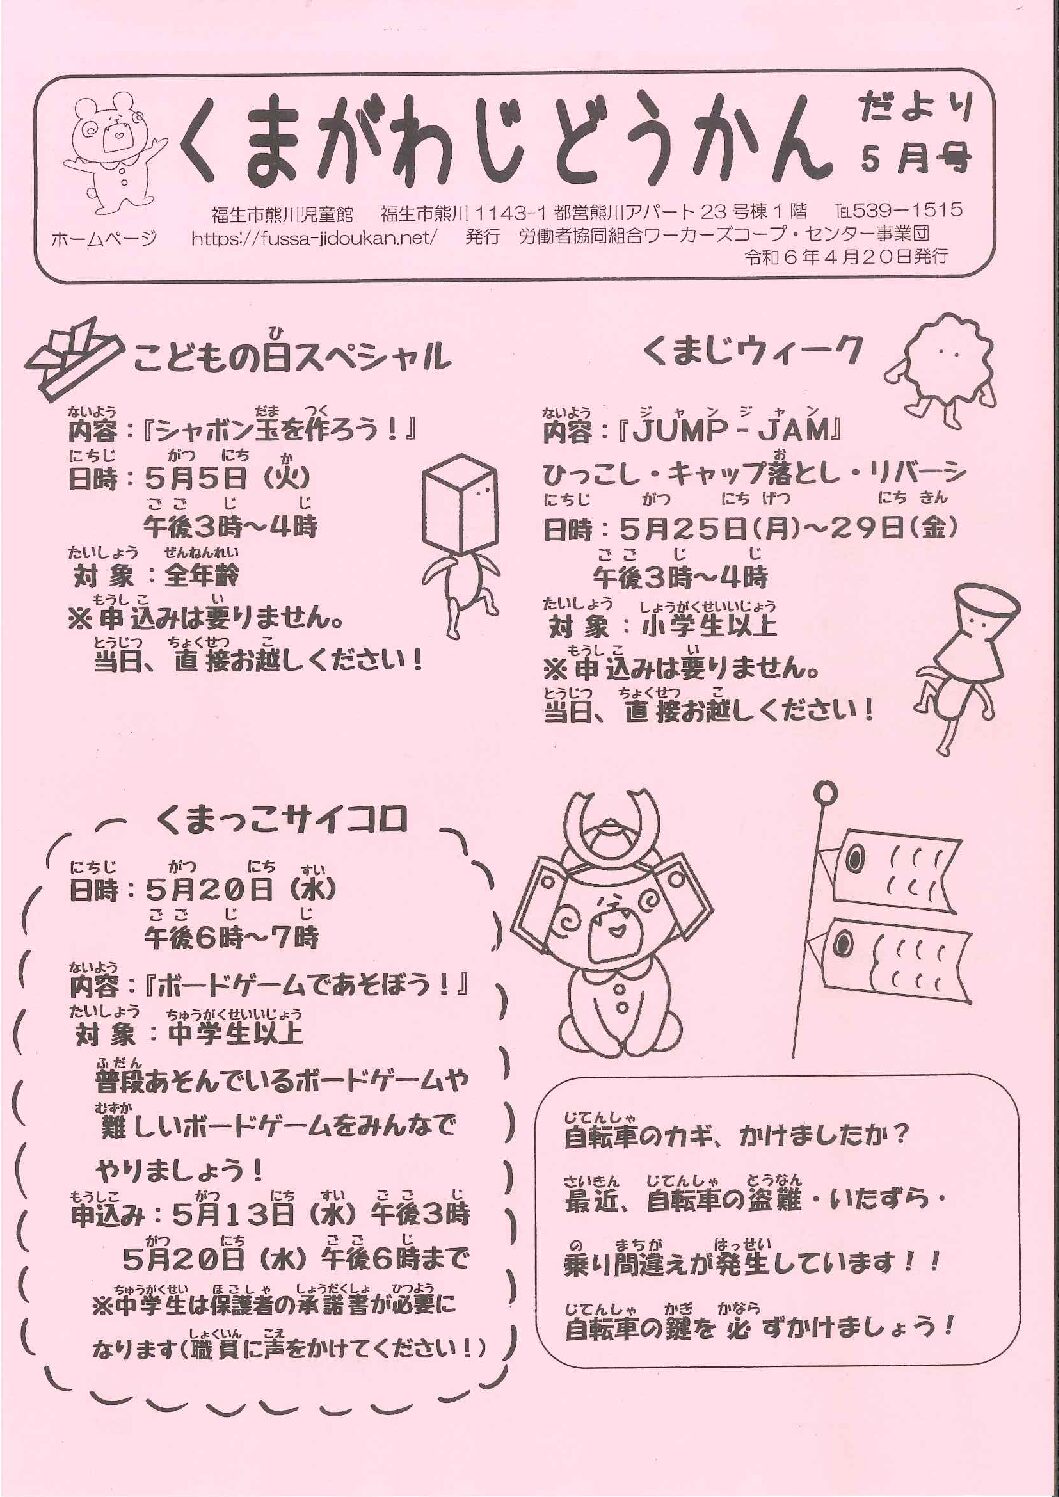 くまがわじどうかん だより
5月号
福生市熊川児童館 福生市熊川1143-1都営熊川アパート23号棟1階 ℡539-1515
ホームページ https://fussa-jidoukan.net/ 発行 労働者協同組合ワーカーズコープ・センター事業団
令和6年4月20日発行
こどもの日スペシャル
内容：『シャボン玉を作ろう！』
日時：5月5日（火）
午後3時～4時
対象：全年齢
※申込みは要りません。
当日、直接お越しください！
くまじウィーク
内容：『JUMP-JAM』
ひっこし・キャップ落とし・リバーシ
日時：5月25日(月)～29日(金)
午後3時～4時
対象：小学生以上
※申込みは要りません。
当日、直接お越しください！
くまっこサイコロ
日時：5月20日（水）
午後6時～7時
内容：『ボードゲームであそぼう！』
対象：中学生以上
普段あそんでいるボードゲームや
難しいボードゲームをみんなで
やりましょう！
申込み：5月13日（水）午後3時
5月20日（水）午後6時まで
※中学生は保護者の承諾書が必要に
なります(職員に声をかけてください！)
自転車のカギ、かけましたか？
最近、自転車の盗難・いたずら・
乗り間違えが発生しています！！
自転車の鍵を必ずかけましょう！